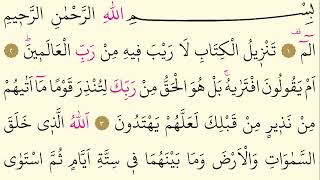 بِسْمِ اللهِ الرَّحْمٰنِ الرَّح۪يمِ
الٓمٓ ﴿١﴾ تَنْز۪يلُ الْكِتَابِ لَا رَيْبَ ف۪يهِ مِنْ رَبِّ الْعَالَم۪ينَ ﴿٢﴾
اَمْ يَقُولُونَ افْتَرٰيهُ بَلْ هُوَ الْحَقُّ مِنْ رَبِّكَ لِتُنْذِرَ قَوْمًا مَٓا اَتٰيهُمْ
مِنْ نَذ۪يرٍ مِنْ قَبْلِكَ لَعَلَّهُمْ يَهْتَدُونَ ﴿٣﴾ اَللهُ الَّذ۪ي خَلَقَ
السَّمٰوَاتِ وَالْاَرْضَ وَمَا بَيْنَهُمَا ف۪ي سِتَّةِ اَيَّامٍ ثُمَّ اسْتَوٰى